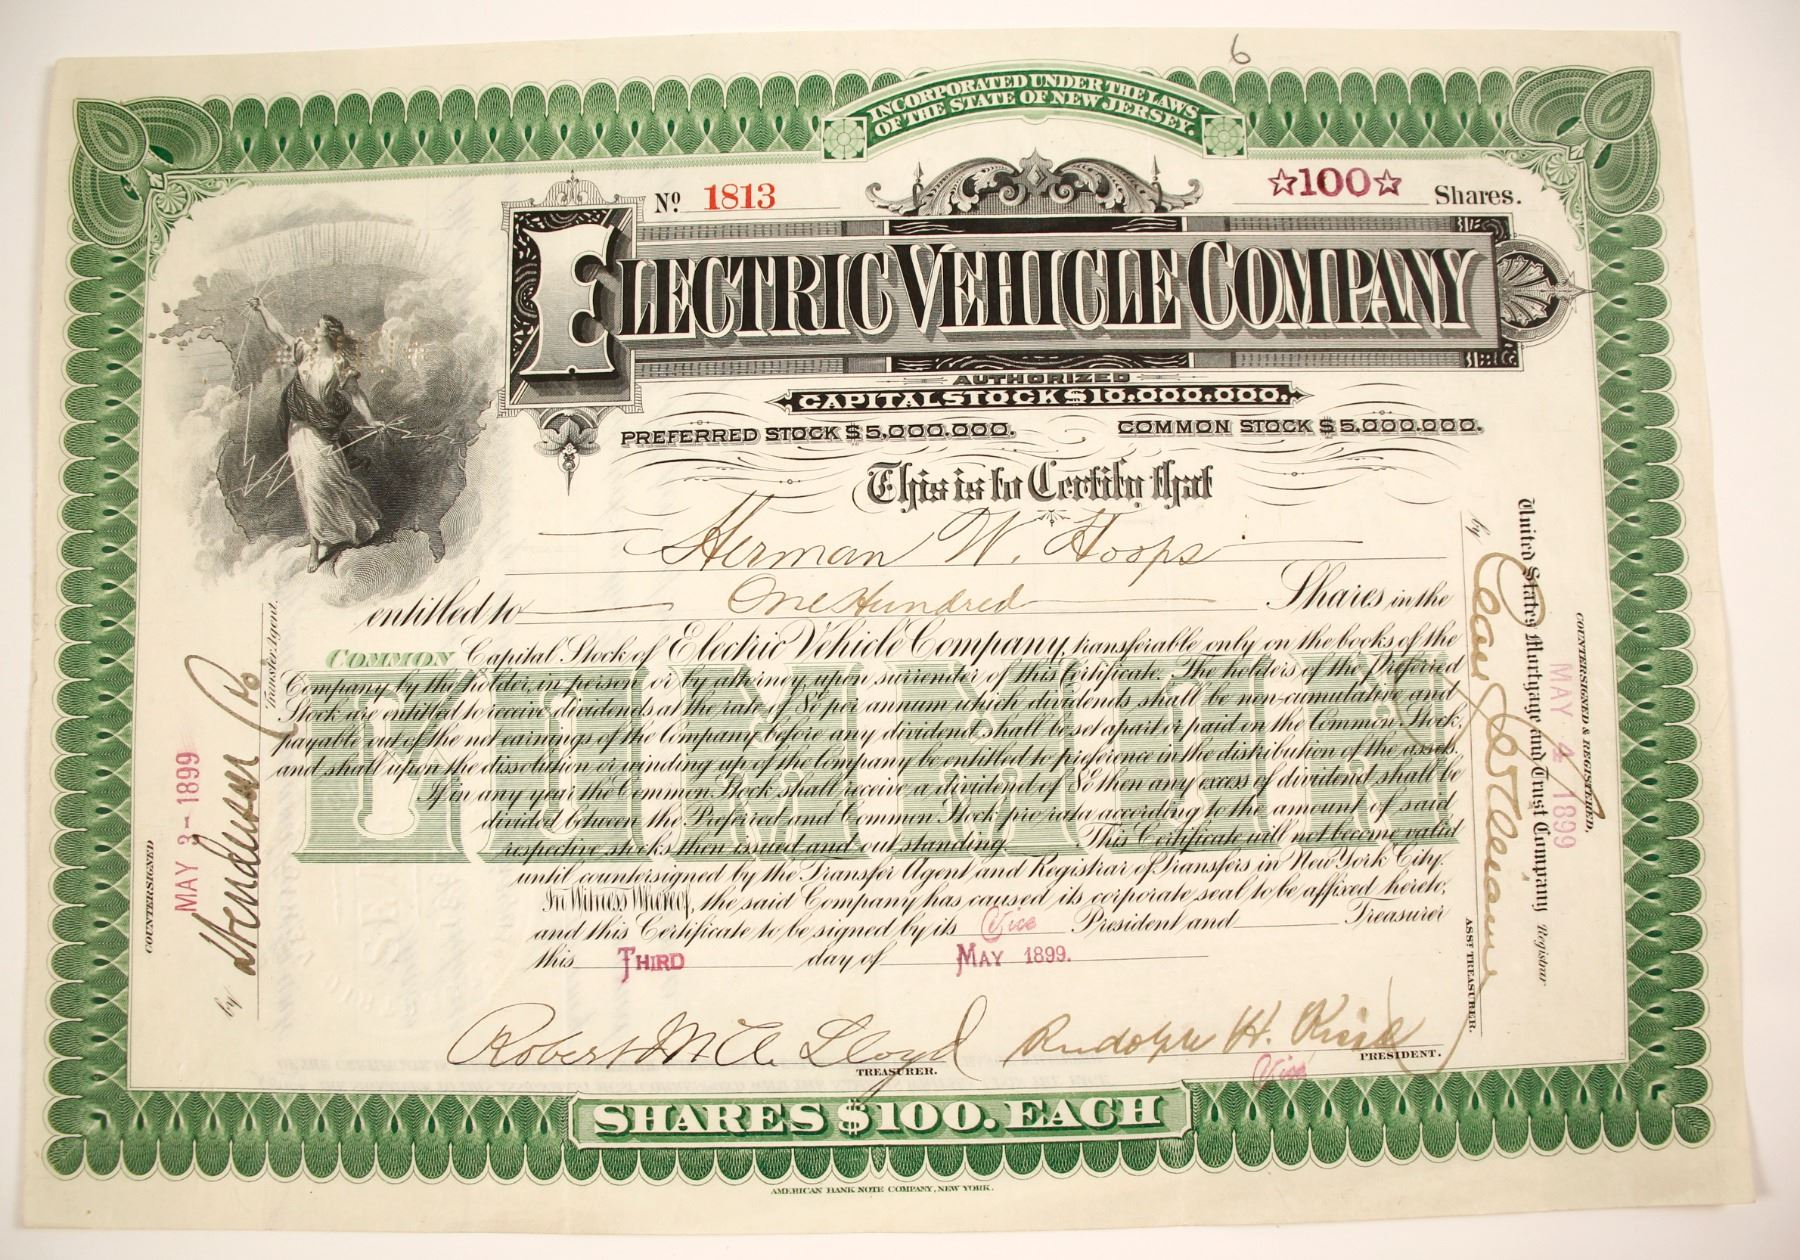 6
INCORPORATED UNDER THE LAWS
OF THE STATE OF NEW JERSEY.
Nº 1813
☆100☆ Shares.
ELECTRIC VEHICLE COMPANY
AUTHORIZED
CAPITAL STOCK $10,000,000.
PREFERRED STOCK $5,000,000. COMMON STOCK $5,000,000.
This is to Certify that
Herman W. Hoops
entitled to One Hundred Shares in the
COMMON Capital Stock of Electric Vehicle Company, transferable only on the books of the
Company by the holder, in person or by attorney, upon surrender of this Certificate. The holders of the Preferred
Stock are entitled to receive dividends at the rate of 8% per annum which dividends shall be non-cumulative and
payable out of the net earnings of the Company before any dividend shall be set apart or paid on the Common Stock,
and shall upon the dissolution or winding up of the Company be entitled to preference in the distribution of the assets.
If in any year the Common Stock shall receive a dividend of 8% then any excess of dividend shall be
divided between the Preferred and Common Stock pro rata according to the amount of said
respective stocks then issued and outstanding. This Certificate will not become valid
until countersigned by the Transfer Agent and Registrar of Transfers in New York City.
In Witness Whereof, the said Company has caused its corporate seal to be affixed hereto,
and this Certificate to be signed by its Vice President and Treasurer
this THIRD day of MAY 1899.
Robert McA. Lloyd
TREASURER.
Rudolph H.
Vice PRESIDENT.
SHARES $100. EACH
AMERICAN BANK NOTE COMPANY, NEW YORK.
COUNTERSIGNED
MAY 3- 1899
by Henderson Co
Transfer Agent.
COUNTERSIGNED & REGISTERED,
MAY 4 1899
United States Mortgage and Trust Company Registrar
by
ASST TREASURER.
COMMON